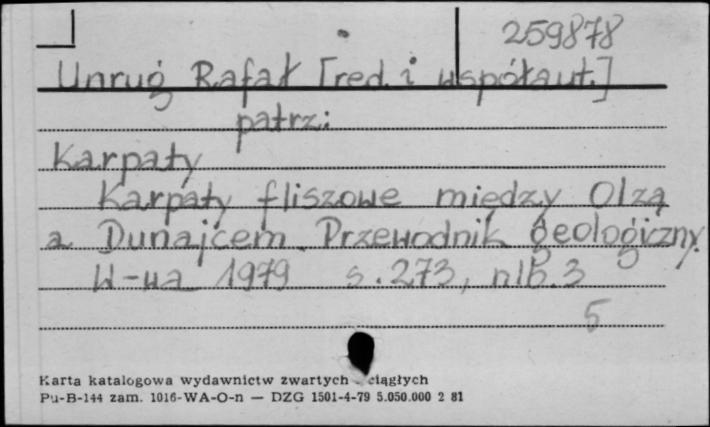 259878
Unrug Rafał [red. i współaut.]
patrz:
Karpaty
Karpaty fliszowe między Olzą
a Dunajcem. Przewodnik geologiczny.
W-wa 1979 s. 273, nlb. 3
5
Karta katalogowa wydawnictw zwartych ciągłych
Pu-B-144 zam. 1016-WA-O-n — DZG 1501-4-79 5.050.000 2 81